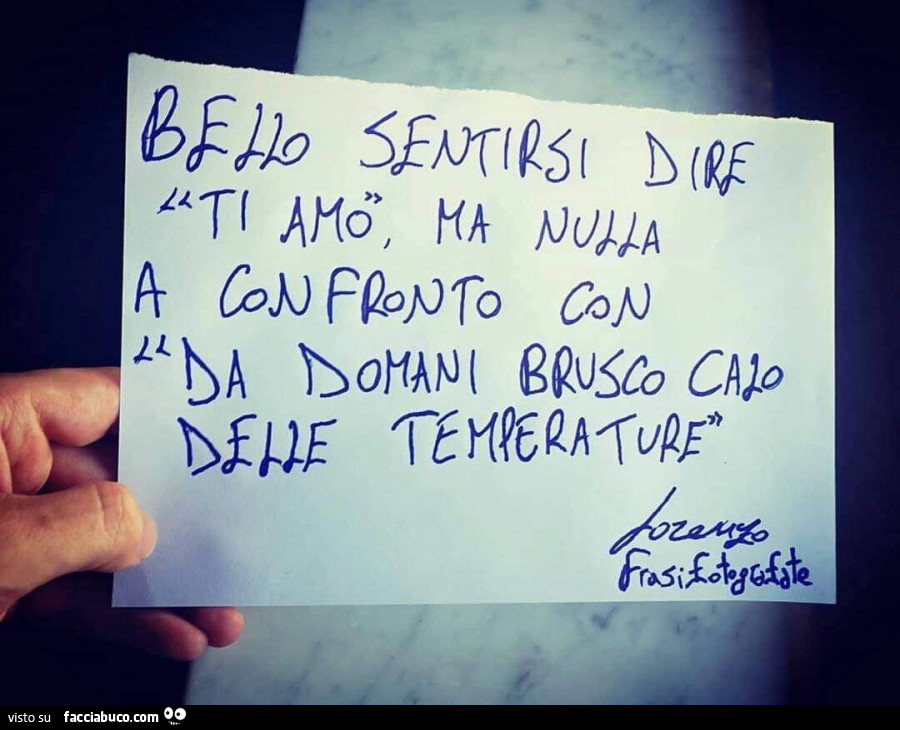 BELLO SENTIRSI DIRE
“TI AMO”, MA NULLA
A CONFRONTO CON
“DA DOMANI BRUSCO CALO
DELLE TEMPERATURE”
Lorenzo
Frasifotografate
visto su facciabuco.com